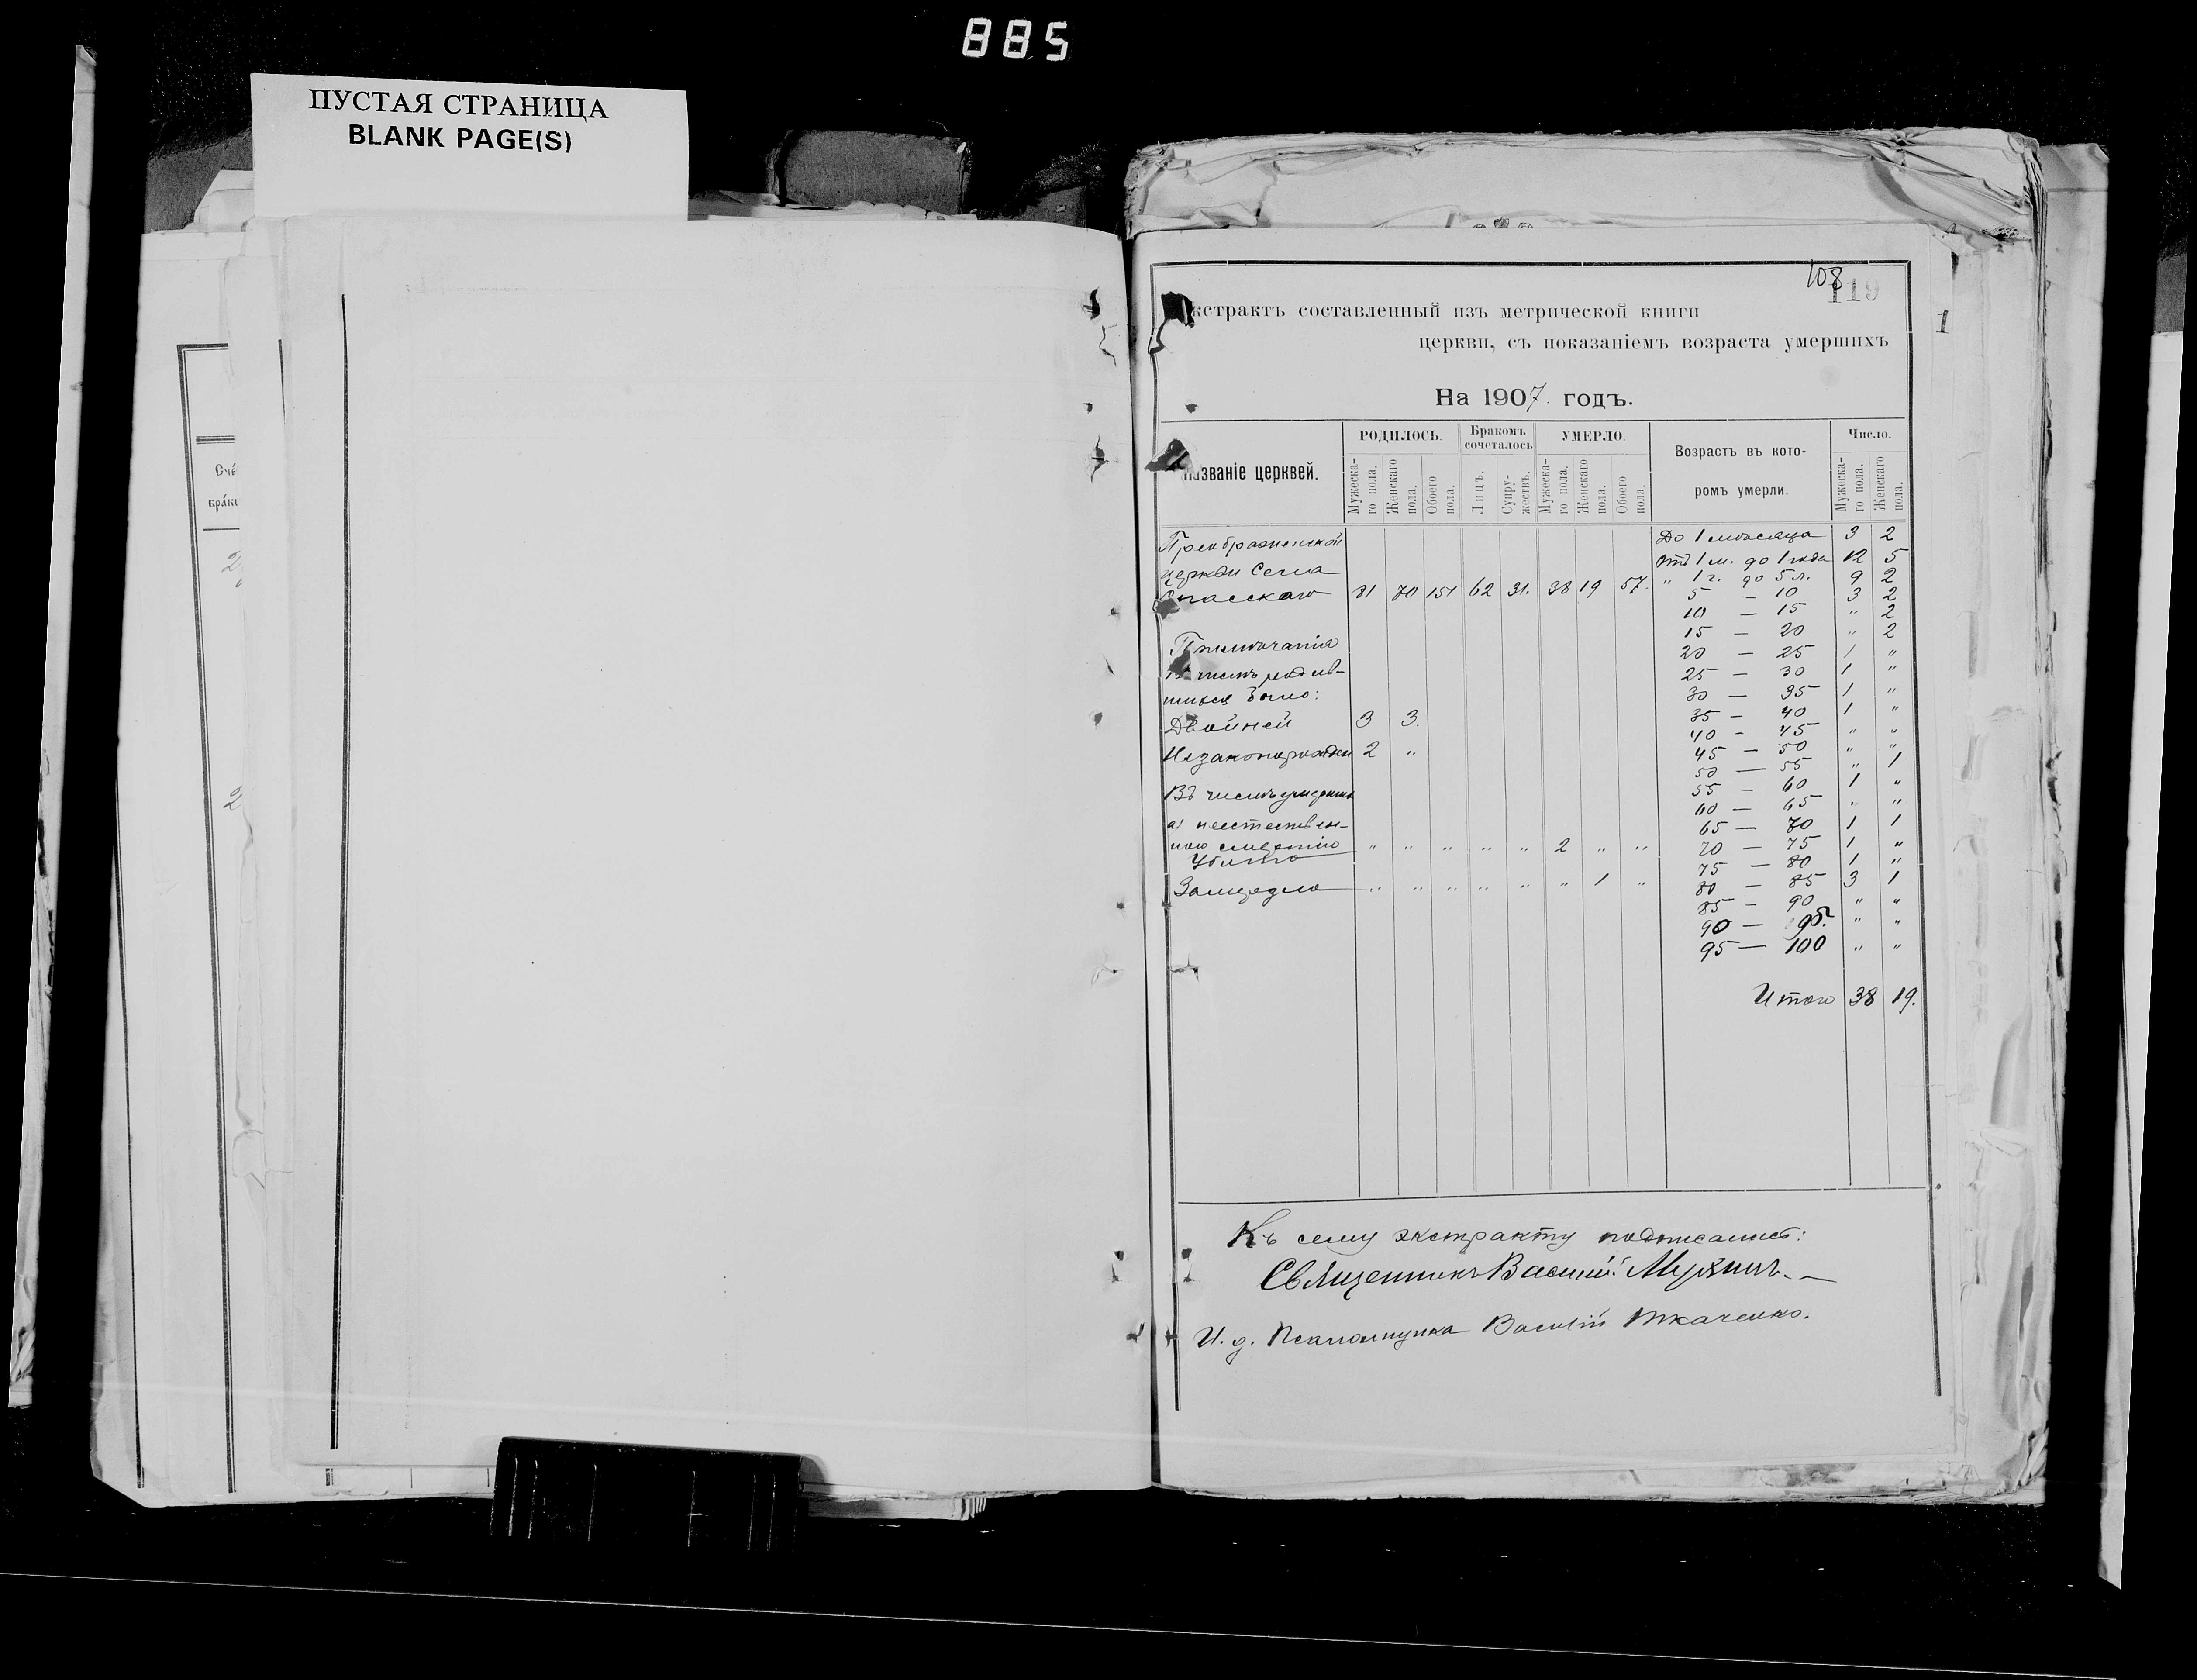 885
ПУСТАЯ СТРАНИЦА
BLANK PAGE(S)
108
119
кстрактъ составленный изъ метрической книги
церкви, съ показаніемъ возраста умершихъ
1
На 1907. годъ.
Названіе церквей. РОДИЛОСЬ. Бракомъ сочеталось УМЕРЛО. Возрастъ въ кото- ромъ умерли. Число.
Мужеска- го пола. Женскаго пола. Обоего пола. Лицъ. Супру- жествъ. Мужеска- го пола. Женскаго пола. Обоего пола. Мужеска- го пола. Женскаго пола.
Сче
бра́к
2
2
Преображенской До 1 мѣсяца 3 2
церкви Села отъ 1 м. до 1 года 12 5
Спасскаго 81 70 151 62 31. 38 19 57. „ 1 г. до 5 л. 9 2
5 — 10 3 2
10 — 15 „ 2
15 — 20 „ 2
Примѣчанія 20 — 25 1 „
Въ числѣ родив- 25 — 30 1 „
шихся было: 30 — 35 1 „
Двойней 3 3. 35 — 40 1 „
40 - 45 „ „
Незаконорожден 2 „ 45 — 50 „ „
50 — 55 „ 1
Въ числѣ умершихъ 55 — 60 1 „
60 — 65 „ „
а) неестествен- 65 — 70 1 1
ною смертію „ „ „ „ „ 2 „ „ 70 — 75 1 „
Убито 75 — 80 1 „
„ „ „ „ „ „ 1 „ 80 — 85 3 1
85 — 90 „ „
90 — 95. „ „
95 — 100 „ „
Итого 38 19.
Къ сему экстракту подписались:
Священникъ Василій
И. д. Псаломщика Василій Ткаченко.